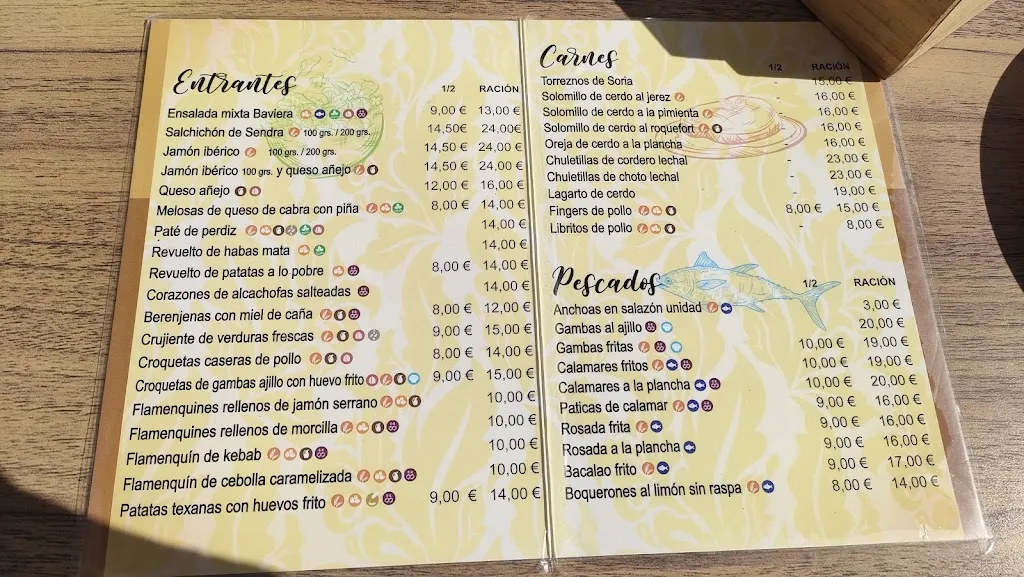 Entrantes
1/2 RACIÓN
Ensalada mixta Baviera 9,00 € 13,00 €
Salchichón de Sendra 100 grs. / 200 grs. 14,50€ 24,00€
Jamón ibérico 100 grs. / 200 grs. 14,50 € 24,00 €
Jamón ibérico 100 grs. y queso añejo 14,50 € 24,00 €
Queso añejo 12,00 € 16,00 €
Melosas de queso de cabra con piña 8,00 € 14,00 €
Paté de perdiz 14,00 €
Revuelto de habas mata 14,00 €
Revuelto de patatas a lo pobre 8,00 € 14,00 €
Corazones de alcachofas salteadas 14,00 €
Berenjenas con miel de caña 8,00 € 12,00 €
Crujiente de verduras frescas 9,00 € 15,00 €
Croquetas caseras de pollo 8,00 € 14,00 €
Croquetas de gambas ajillo con huevo frito 9,00 € 15,00 €
Flamenquines rellenos de jamón serrano 10,00 €
Flamenquines rellenos de morcilla 10,00 €
Flamenquín de kebab 10,00 €
Flamenquín de cebolla caramelizada 10,00 €
Patatas texanas con huevos frito 9,00 € 14,00 €
Carnes
1/2 RACIÓN
Torreznos de Soria - 15,00 €
Solomillo de cerdo al jerez - 16,00 €
Solomillo de cerdo a la pimienta 16,00 €
Solomillo de cerdo al roquefort 16,00 €
Oreja de cerdo a la plancha 16,00 €
Chuletillas de cordero lechal - 23,00 €
Chuletillas de choto lechal - 23,00 €
Lagarto de cerdo - 19,00 €
Fingers de pollo 8,00 € 15,00 €
Libritos de pollo - 8,00 €
Pescados
1/2 RACIÓN
Anchoas en salazón unidad 3,00 €
Gambas al ajillo 20,00 €
Gambas fritas 10,00 € 19,00 €
Calamares fritos 10,00 € 19,00 €
Calamares a la plancha 10,00 € 20,00 €
Paticas de calamar 9,00 € 16,00 €
Rosada frita 9,00 € 16,00 €
Rosada a la plancha 9,00 € 16,00 €
Bacalao frito 9,00 € 17,00 €
Boquerones al limón sin raspa 8,00 € 14,00 €